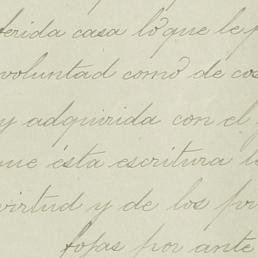 erida casa lo que le p
voluntad como de cos
y adquirida con el
que ésta escritura l
virtud y de los pr
fojas por ante